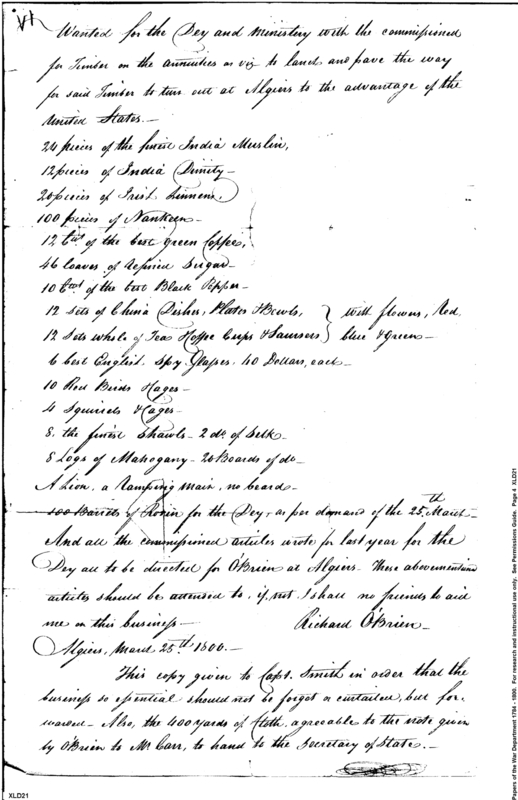 Wanted for the Dey and Ministery with the commissioned
for Timber on the annuities as viz to land and pave the way
for said Timber to turn out at Algiers to the advantage of the
United States.—
24 pieces of the finest India Muslin,
12 pieces of India Dimity—
20 pieces of Irish Linnens,
100 pieces of Nankeen—
12 Cwt of the best green Coffee,
46 loaves of refined Sugar—
10 Cwt of the best Black Pepper—
12 Sets of China Dishes, Plates & Bowls, } with flowers, Red,
12 Sets whole of Teas & Coffee Cups & Saursers } blue & green—
6 best English Spy Glasses. 40 Dollars, each—
10 Red Birds & Cages—
4 Squirrels & Cages—
8, the finest Shawls— 2 do. of Silk—
8 Logs of Mahogany— 20 Boards of do—
A Lion, a ramping main, no beard—
100 Barrels of Rosin for the Dey, as per demand of the 25th March—
And all the commissioned articles wrote for last year for the
Dey all to be directed for O'Brien at Algiers— These abovemention
articles should be attended to, if not I shall no friends to aid
me on this business— Richard O'Brien—
Algiers, March 25th 1800.—
This copy given to Capt. Smith in order that the
business so essential should not be forgot or curtailed, but for-
warded— Also, the 400 yards of Cloth, agreeable to the note given
by O'Brien to Mr Carr, to hand to the Secretary of State.—
XLD21
Papers of the War Department 1784 - 1800. For research and instructional use only. See Permissions Guide. Page 4 XLD21